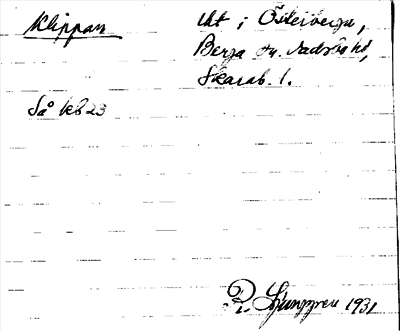 Klippan
Uht i Österberga,
Berga sn. Vadsbo hd,
Skarab. l.
Så kb 23
R. Ljunggren 1931